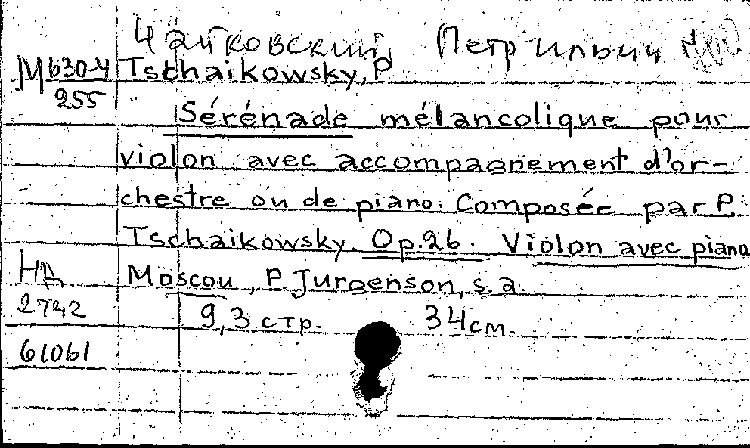 Чайковский, Петр Ильич
М630-4 Tschaikowsky, P
255
Sérénade mélancolique pour
violon avec accompagnement d'or-
chestre ou de piano. Composée par P.
Tschaikowsky. Op.26. Violon avec piano
Moscou, P. Jurgenson, s.a.
НД
2742
9,3 стр. 34 см.
61061